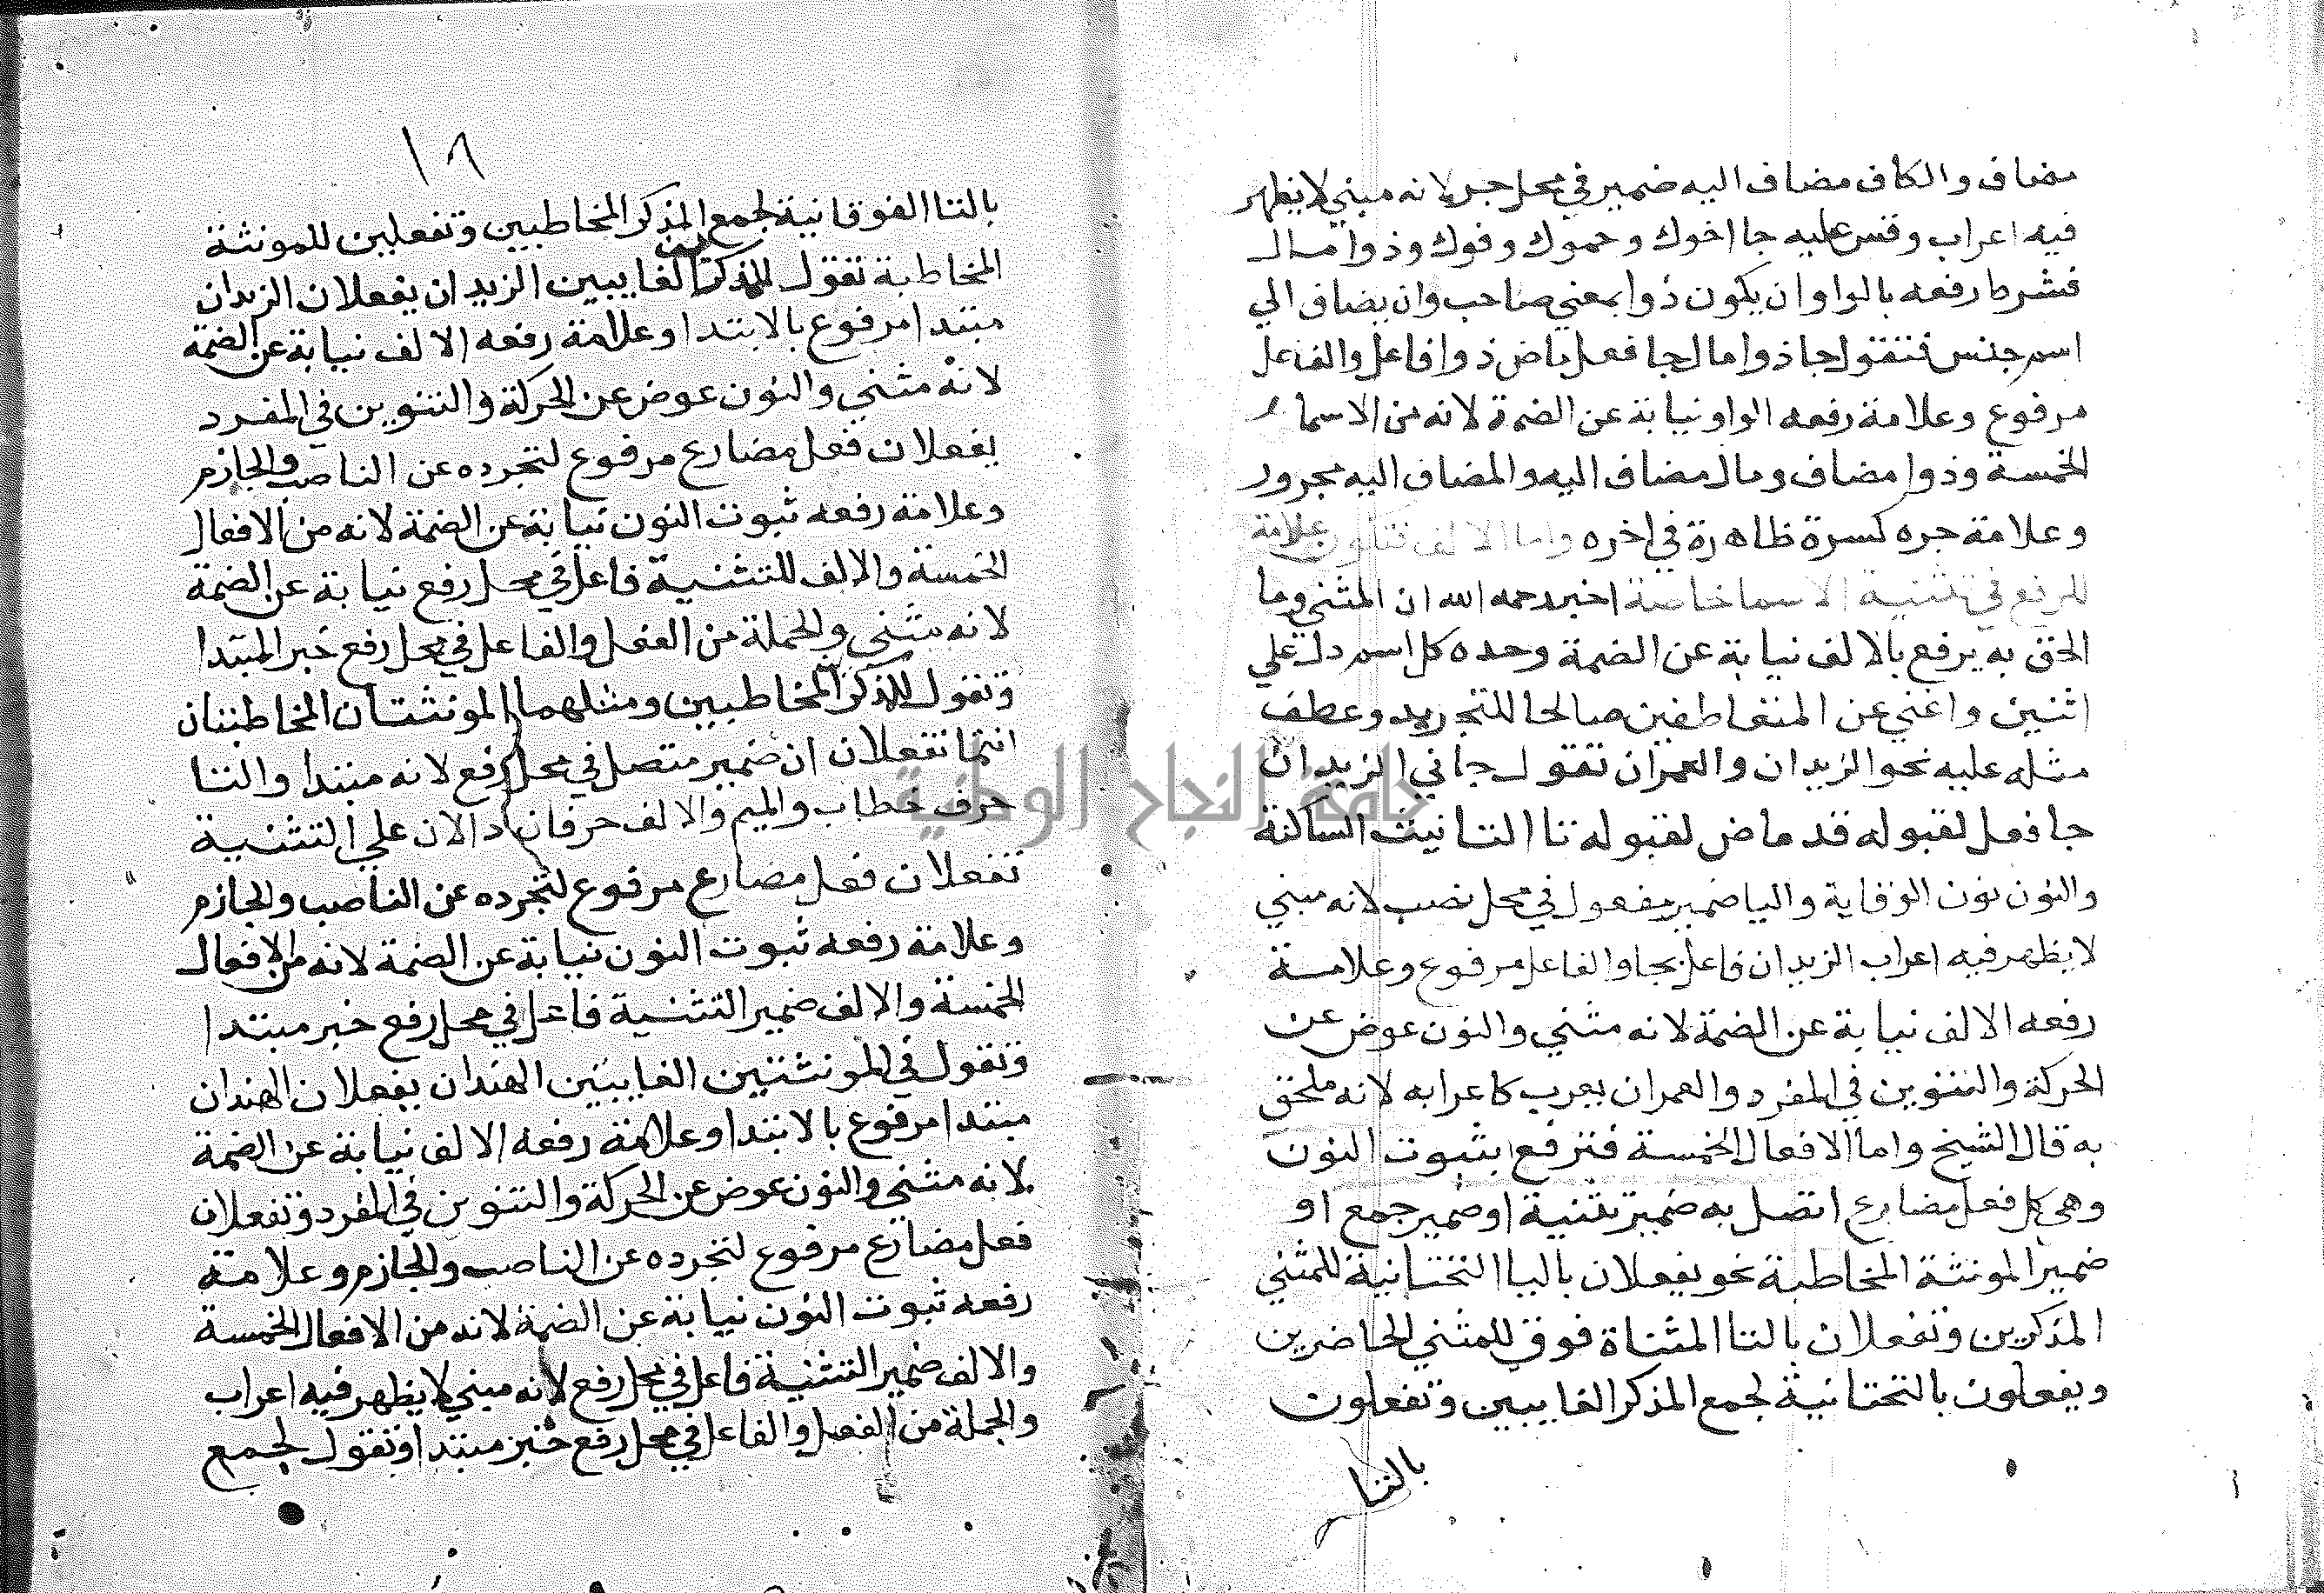 مضاف والكاف مضاف اليه ضمير في محل جر لانه مبني لا يظهر
فيه اعراب وقس عليه جا اخوك وحموك وفوك وذوا مال
فشرط رفعه بالواو ان يكون ذوا بمعني صاحب وان يضاف الي
اسم جنس فتقول جا ذوا مال جا فعل ماض ذوا فاعل والفاعل
مرفوع وعلامة رفعه الواو نيابة عن الضمة لانه من الاسما
الخمسة وذوا مضاف ومال مضاف اليه والمضاف اليه مجرور
وعلامة جره كسرة ظاهرة في اخره واما الالف فتكون علامة
للرفع في تثنية الاسما خاصة اخبر رحمه الله ان المثني وما
الحق به يرفع بالالف نيابة عن الضمة وحده كل اسم دل علي
اثنين واغني عن المتعاطفين صالحا للتجريد وعطف
مثله عليه نحو الزيدان والعمران تقول جاني الزيدان
جا فعل لقبوله قد ماض لقبوله تا التانيث الساكنة
والنون نون الوقاية واليا ضمير مفعول في محل نصب لانه مبني
لا يظهر فيه اعراب الزيدان فاعل بجا والفاعل مرفوع وعلامة
رفعه الالف نيابة عن الضمة لانه مثني والنون عوض عن
الحركة والتنوين في المفرد والعمران يعرب كاعرابه لانه ملحق
به قال الشيخ واما الافعال الخمسة فترفع بثبوت النون
وهي كل فعل مضارع اتصل به ضمير تثنية او ضمير جمع او
ضمير المونثة المخاطبة نحو يفعلان باليا التحتانية للمثني
المذكرين وتفعلان بالتا المثناة فوق للمثني الحاضرين
ويفعلون بالتحتانية لجمع المذكر الغايبين وتفعلون
بالتا
١٨
بالتا الفوقانية لجمع المذكر المخاطبين وتفعلين للمونثة
المخاطبة تقول للمذكرين الغايبين الزيدان يفعلان الزيدان
مبتدا مرفوع بالابتدا وعلامة رفعه الالف نيابة عن الضمة
لانه مثني والنون عوض عن الحركة والتنوين في المفرد
يفعلان فعل مضارع مرفوع لتجرده عن الناصب والجازم
وعلامة رفعه ثبوت النون نيابة عن الضمة لانه من الافعال
الخمسة والالف للتثنية فاعل في محل رفع نيابة عن الضمة
لانه مثني والجملة من الفعل والفاعل في محل رفع خبر المبتدا
وتقول للمذكرين المخاطبين ومثلهما المونثتان المخاطبتان
انتما تفعلان ان ضمير متصل في محل رفع لانه مبتدا والتا
حرف خطاب والميم والالف حرفان دالان علي التثنية
تفعلان فعل مضارع مرفوع لتجرده عن الناصب والجازم
وعلامة رفعه ثبوت النون نيابة عن الضمة لانه من الافعال
الخمسة والالف ضمير التثنية فاعل في محل رفع خبر مبتدا
وتقول في المونثتين الغايبتين الهندان يفعلان الهندان
مبتدا مرفوع بالابتدا وعلامة رفعه الالف نيابة عن الضمة
لانه مثني والنون عوض عن الحركة والتنوين في المفرد وتفعلان
فعل مضارع مرفوع لتجرده عن الناصب والجازم وعلامة
رفعه ثبوت النون نيابة عن الضمة لانه من الافعال الخمسة
والالف ضمير التثنية فاعل في محل رفع لانه مبني لا يظهر فيه اعراب
والجملة من الفعل والفاعل في محل رفع خبر مبتدا وتقول لجمع
جامعة النجاح الوطنية